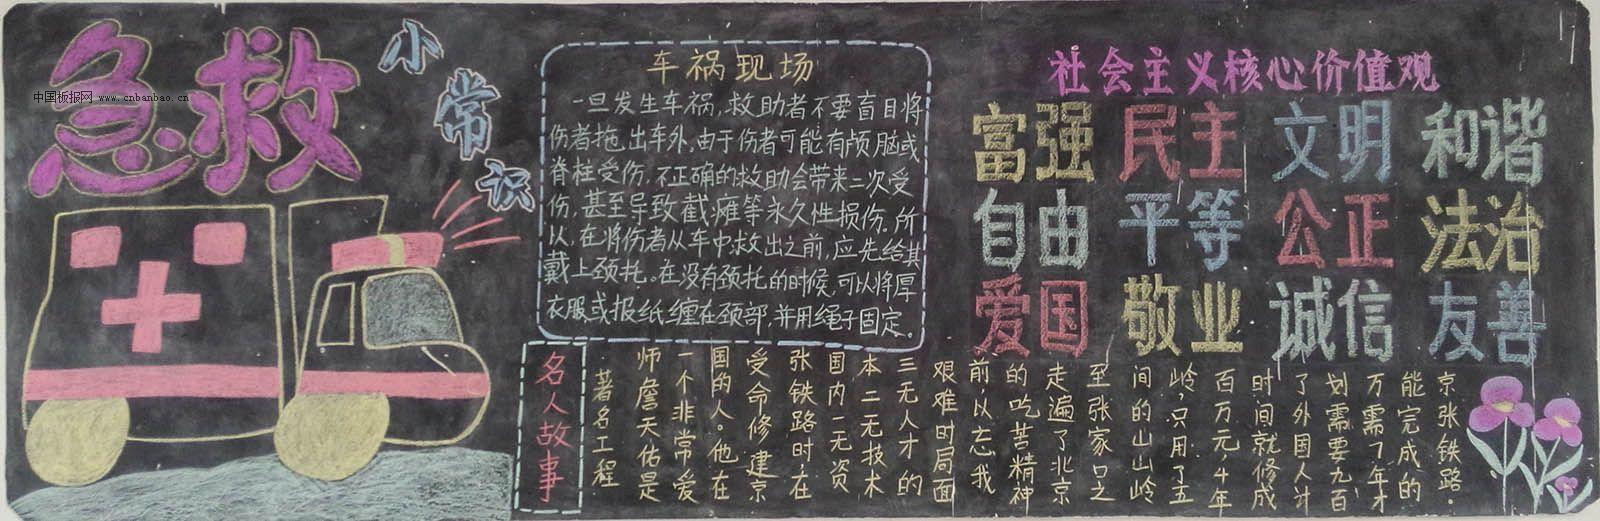 急救
小常识
中国板报网 www.cnbanbao.cn
车祸现场
一旦发生车祸,救助者不要盲目将
伤者拖出车外,由于伤者可能有颅脑或
脊柱受伤,不正确的救助会带来二次受
伤,甚至导致截瘫等永久性损伤.所
以,在将伤者从车中救出之前,应先给其
戴上颈托。在没有颈托的时候,可以将厚
衣服或报纸缠在颈部,并用绳子固定。
社会主义核心价值观
富强 民主 文明 和谐
自由 平等 公正 法治
爱国 敬业 诚信 友善
名人故事
著名工程
师詹天佑是
一个非常爱
国的人。他在
受命修建京
张铁路时,在
国内一无资
本二无技术
三无人才的
艰难时局面
前以忘我
的吃苦精神
走遍了北京
至张家口之
间的山山岭
岭,只用了五
百万元,4年
时间就修成
了外国人计
划需要九百
万需7年才
能完成的
京张铁路.